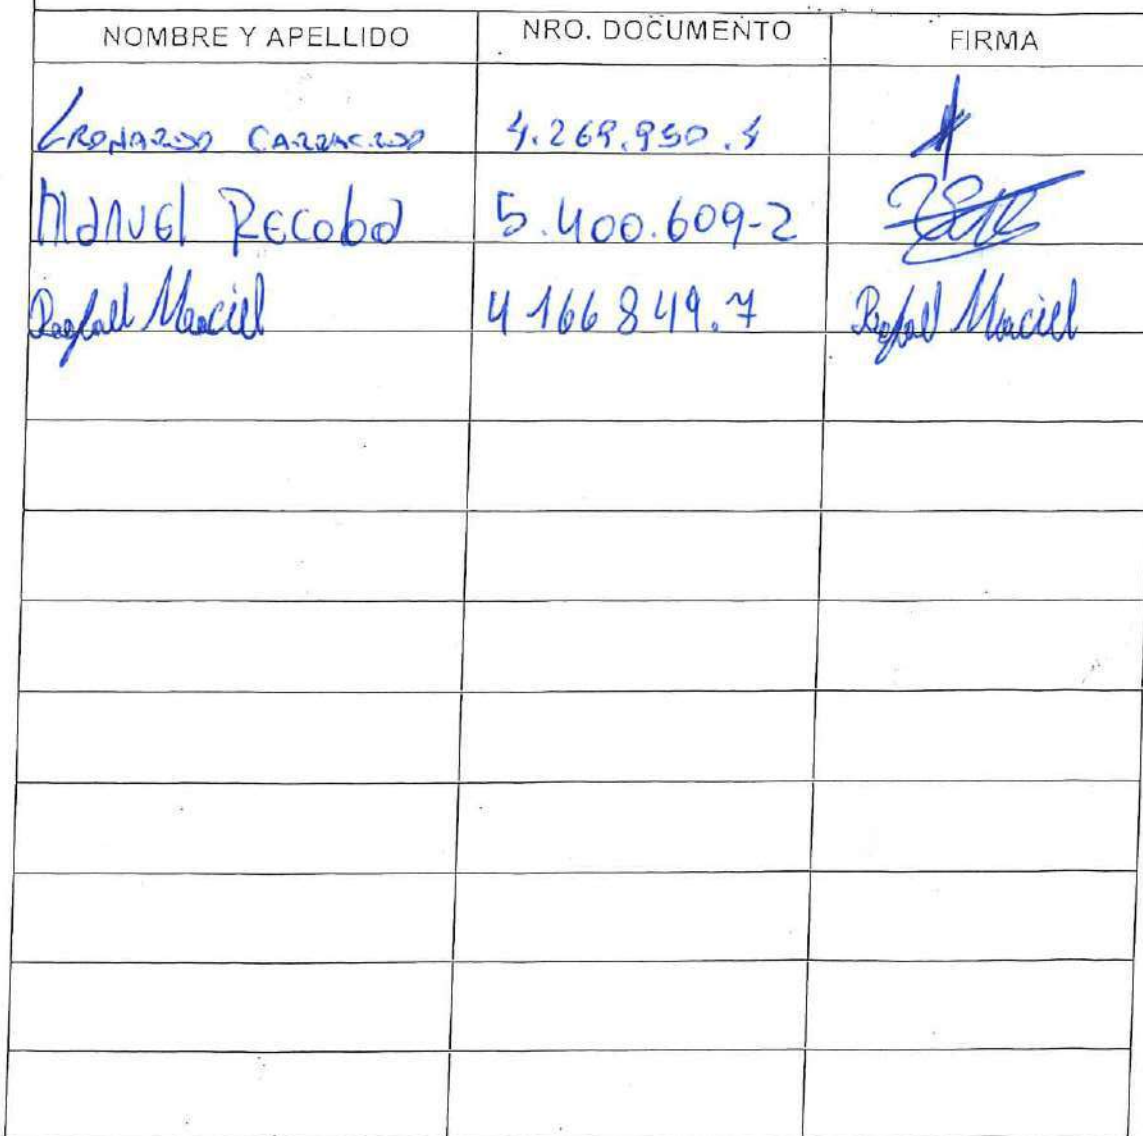 NOMBRE Y APELLIDO NRO. DOCUMENTO FIRMA
Leonardo 4.269.950.4
Manuel Recoba 5.400.609-2
Rafael Maciel 4 166 849.7 Rafael Maciel